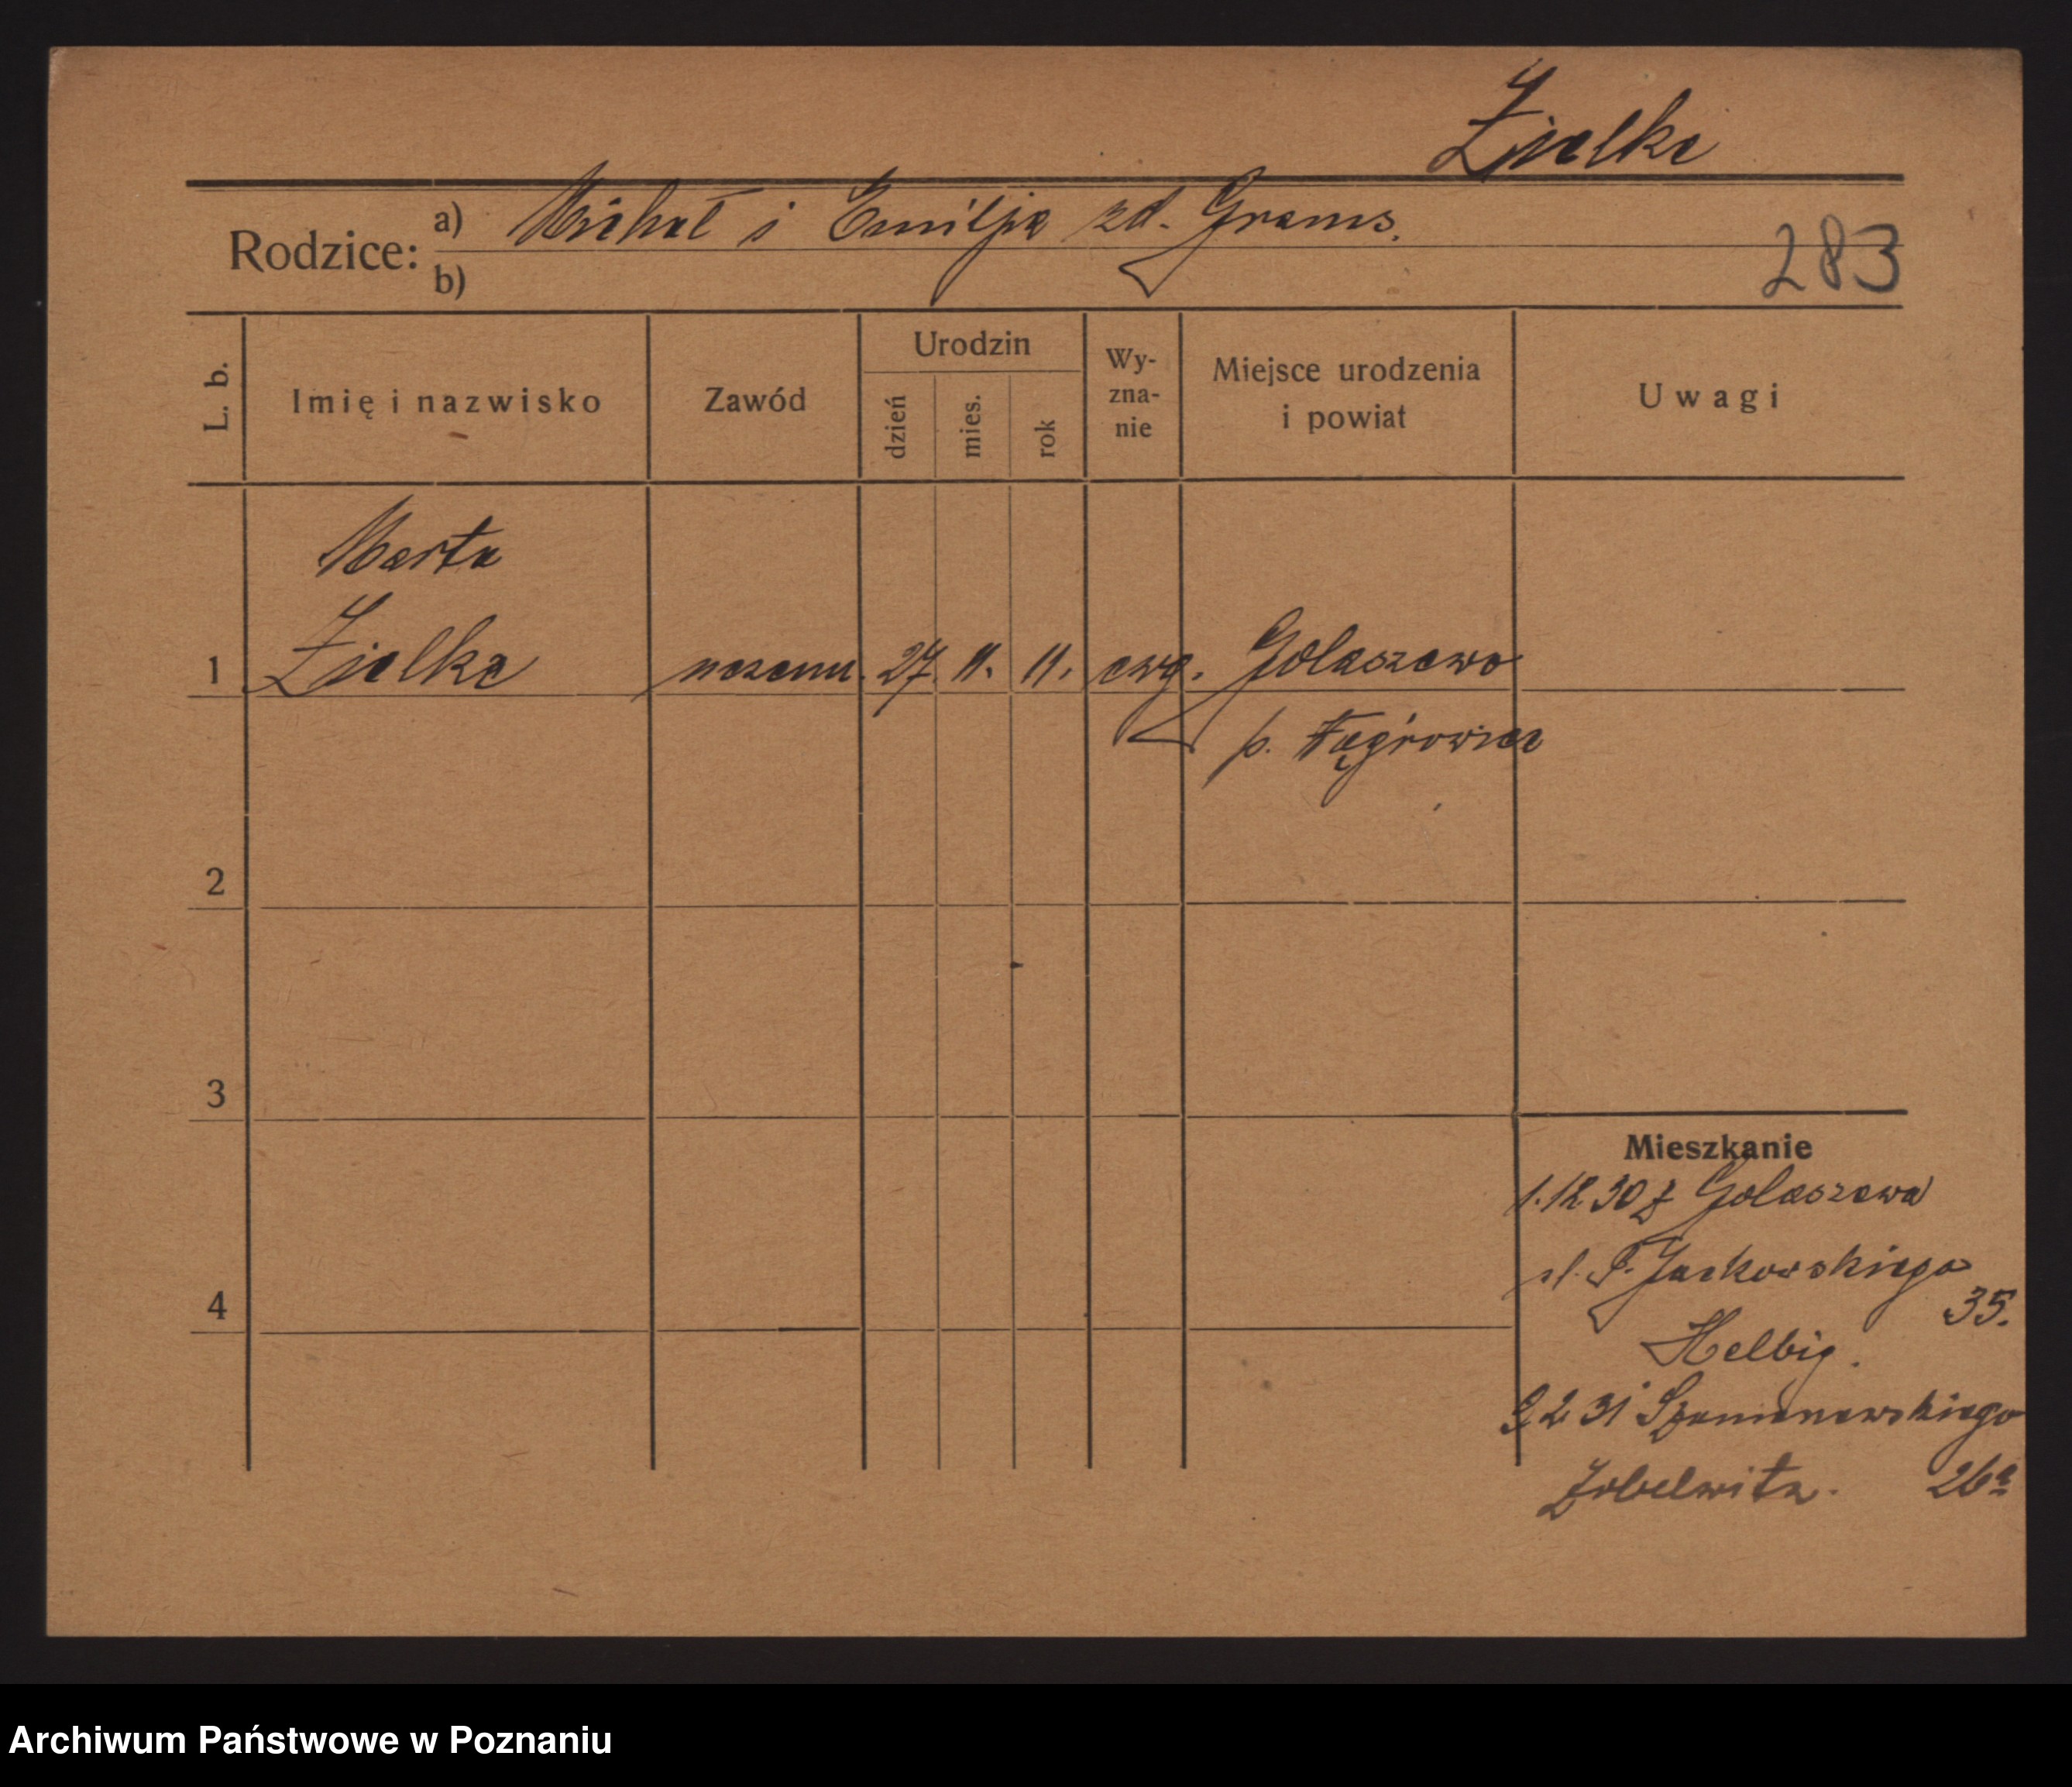 Zielke
Rodzice: a) Michał i Emilja zd. Grams.
b)
283
L. b. Imię i nazwisko Zawód Urodzin dzień mies. rok Wy-zna-nie Miejsce urodzenia i powiat Uwagi
Marta
1 Zielke 27. 11. 11. ewg. Gołaszewo
p. Wągrowiec
2
3
4
Mieszkanie
1.12 30 z Gołaszewa
ul. P. Jackowskiego
35.
Helbig.
2 31 Szamarzewskiego
26a
Archiwum Państwowe w Poznaniu